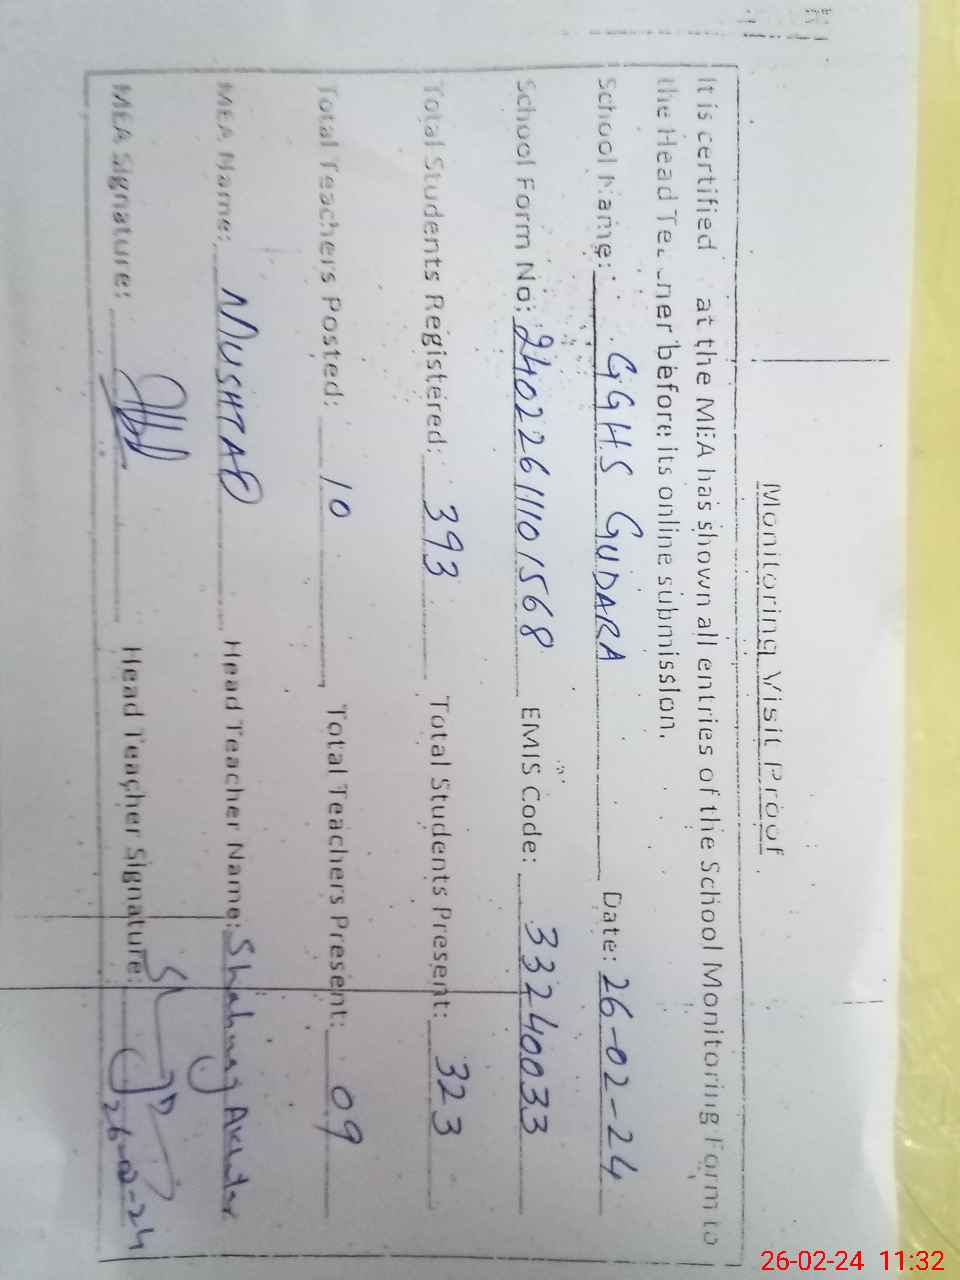 Monitoring Visit Proof
It is certified at the MEA has shown all entries of the School Monitoring Form to
the Head Teacher before its online submission.
School Name: GGHS GUDARA Date: 26-02-24
School Form No: 240226111101568 EMIS Code: 33240033
Total Students Registered: 393 Total Students Present: 323
Total Teachers Posted: 10 Total Teachers Present: 09
MEA Name: MUSHTAQ Head Teacher Name: Shahnaj Akhter
MEA Signature: Head Teacher Signature:
26-02-24
26-02-24 11:32